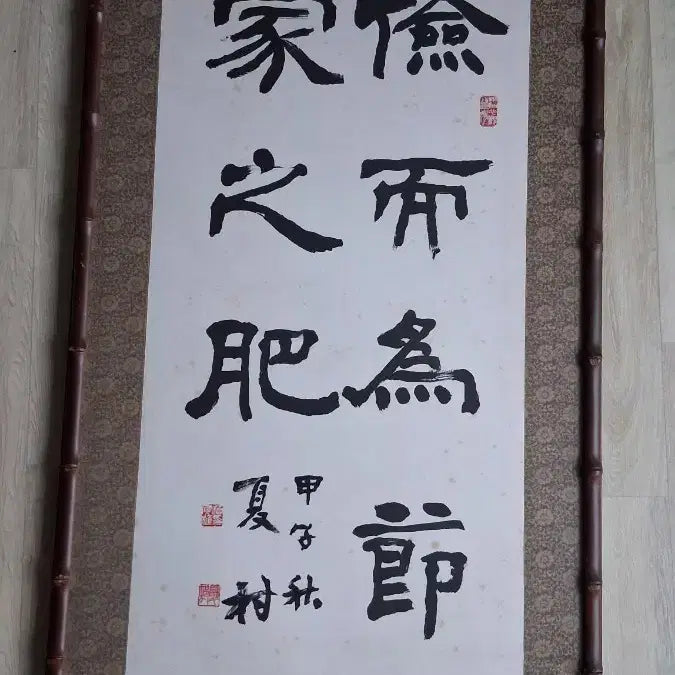 儉而為節
家之肥
甲子秋
夏村